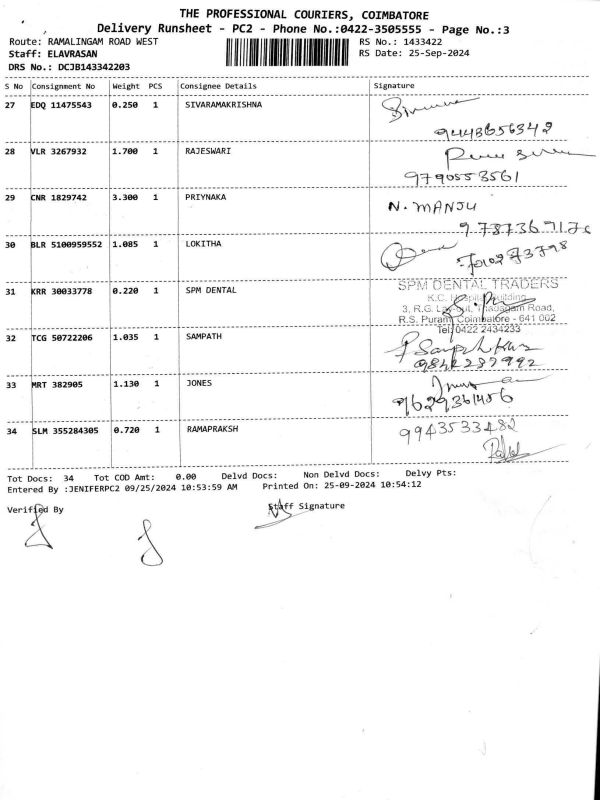 THE PROFESSIONAL COURIERS, COIMBATORE
Delivery Runsheet - PC2 - Phone No.:0422-3505555 - Page No.:3
Route: RAMALINGAM ROAD WEST RS No.: 1433422
Staff: ELAVRASAN RS Date: 25-Sep-2024
DRS No.: DCJB143342203
S No Consignment No Weight PCS Consignee Details Signature
27 EDQ 11475543 0.250 1 SIVARAMAKRISHNA
9448656342
28 VLR 3267932 1.700 1 RAJESWARI
9790553561
29 CNR 1829742 3.300 1 PRIYNAKA N. MANJU
30 BLR 5100959552 1.085 1 LOKITHA
SPM DENTAL TRADERS
31 KRR 30033778 0.220 1 SPM DENTAL K.C. Hospital Building
3, R.G. Lay-out, Road,
R.S. Puram, Coimbatore - 641 002
Tel: 0422 2434233
32 TCG 50722206 1.035 1 SAMPATH
9842287992
33 MRT 382905 1.130 1 JONES
9629361456
34 SLM 355284305 0.720 1 RAMAPRAKSH 9943533482
Tot Docs: 34 Tot COD Amt: 0.00 Delvd Docs: Non Delvd Docs: Delvy Pts:
Entered By :JENIFERPC2 09/25/2024 10:53:59 AM Printed On: 25-09-2024 10:54:12
Verified By Staff Signature